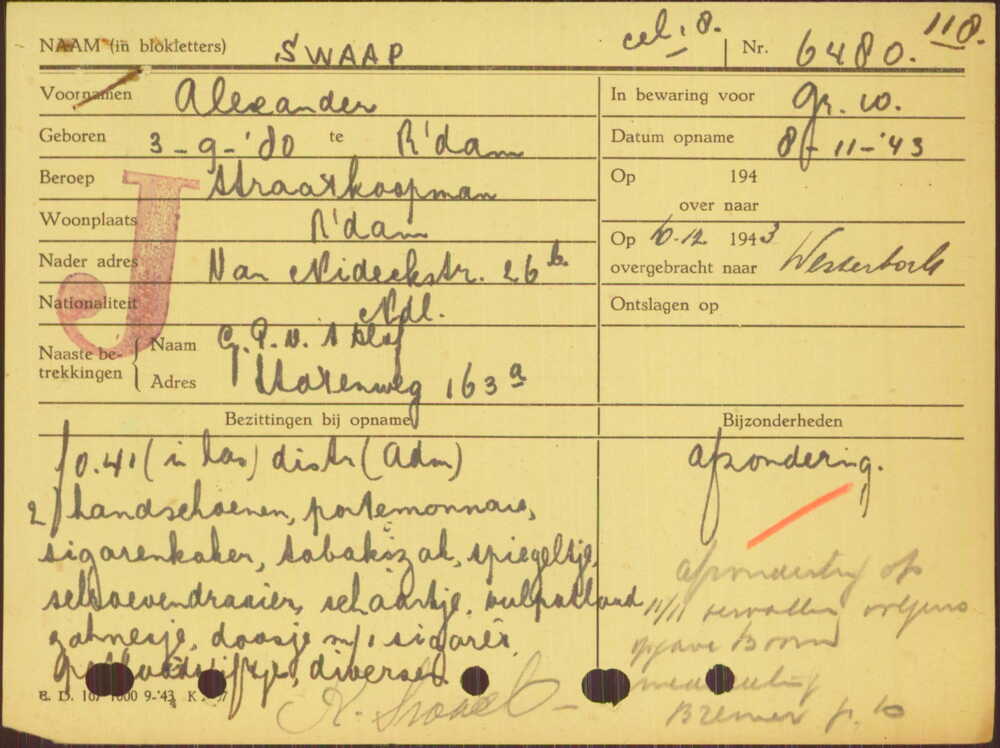 cel. 8. 118.
NAAM (in blokletters) SWAAP Nr. 6480.
Voornamen Alexander In bewaring voor gr. 10.
Geboren 3-9-'80 te R'dam Datum opname 8-11-'43
Beroep Straatkoopman Op 194
over naar
Woonplaats R'dam
Nader adres Van Nideckstr. 26 b. Op 10-12 1943
overgebracht naar Westerbork
Nationaliteit Ndl. Ontslagen op
Naaste be-
trekkingen
Naam G. P. v. 't
Adres 163 a
J
Bezittingen bij opname Bijzonderheden
f 0.41 (in tas) distr (Adm) afzondering.
2 handschoenen, portemonnaie,
sigarenkoker, tabakszak, spiegeltje, afzondering op
schroevendraaier, schaartje, vulpotlood 11/11 vervallen volgens
zakmesje, doosje m/1 sigaret opgave
potloodslijpje, diversen. mededeling
C. D. 107 1000 9-'43
K.
Bremer